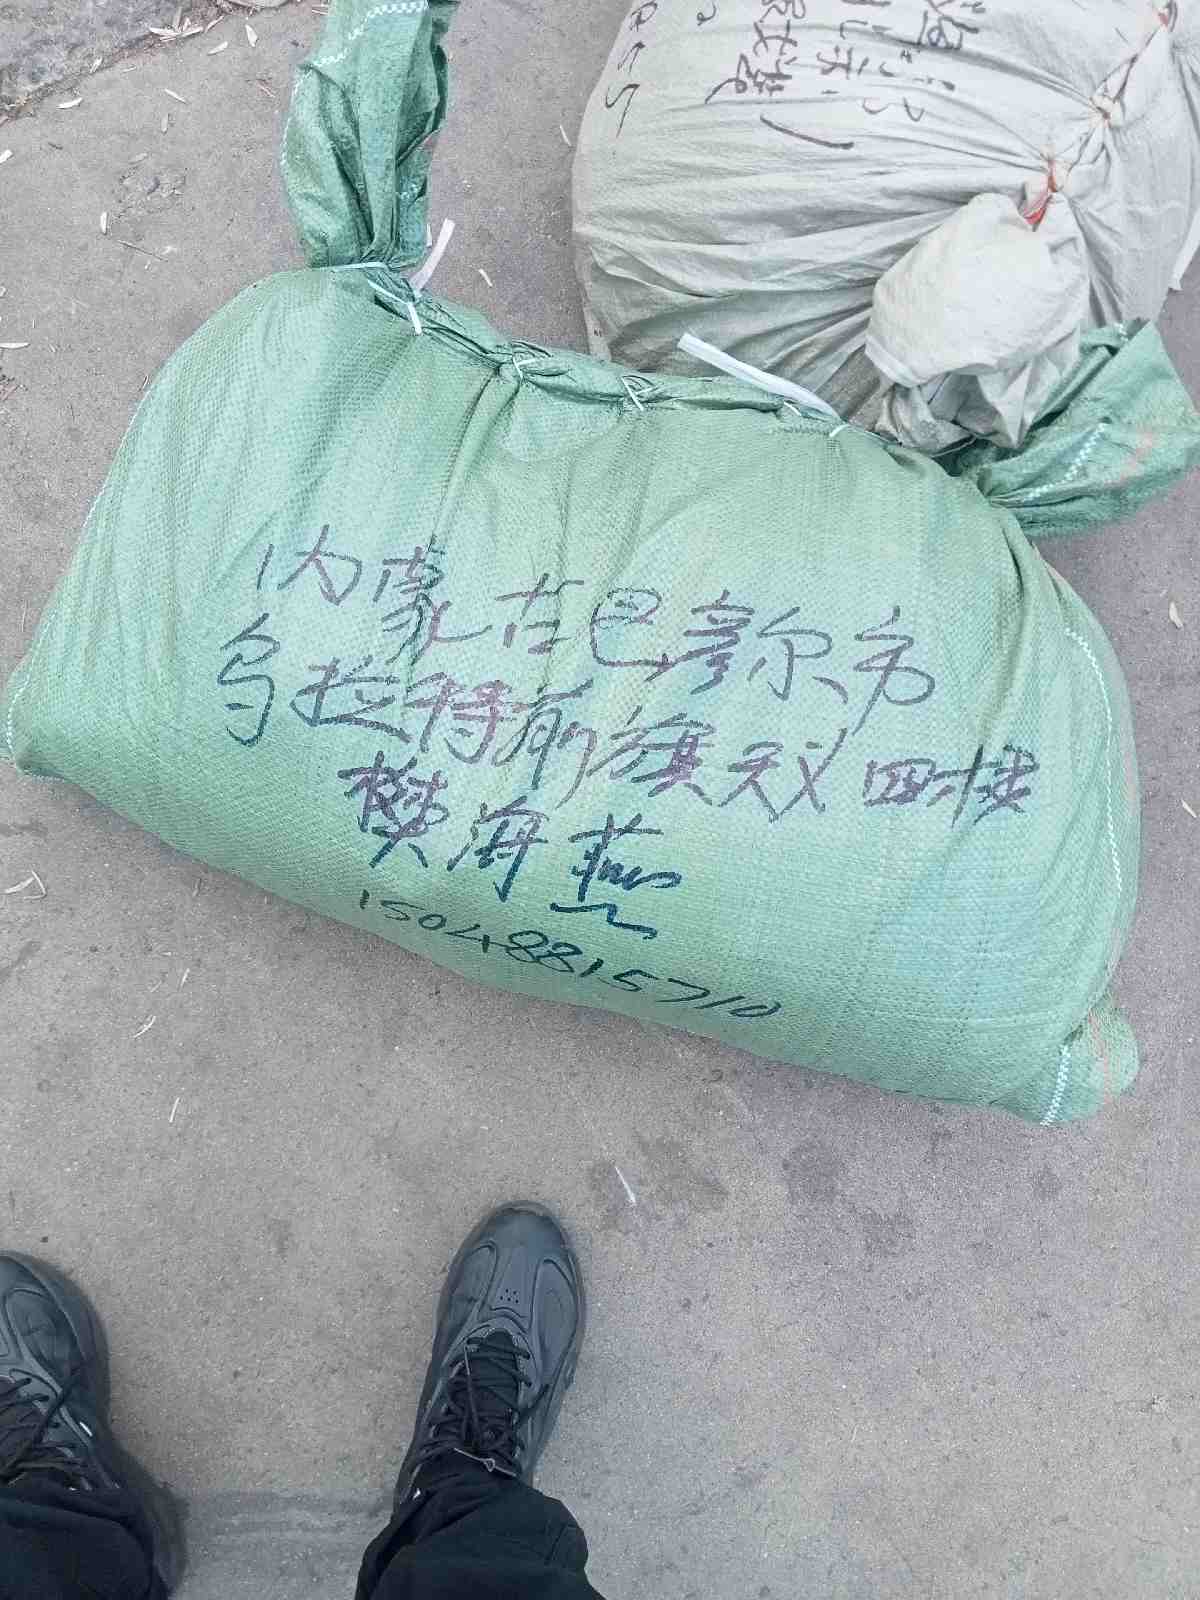 内蒙古巴彦尔市
乌拉特前旗双四楼
樊海燕
15048815710